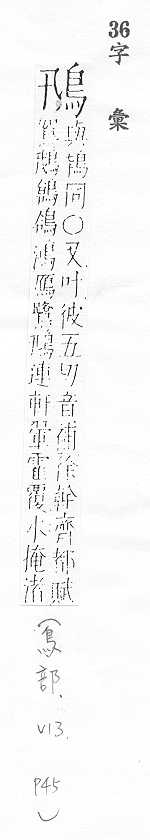 36
字彙
鳵
與鴇同○又叶彼五切音補徐幹齊都賦
鵝鶬鴰鴻鴈鷺鳵連軒翬霍覆水掩渚
(鳥部. V13. P45)